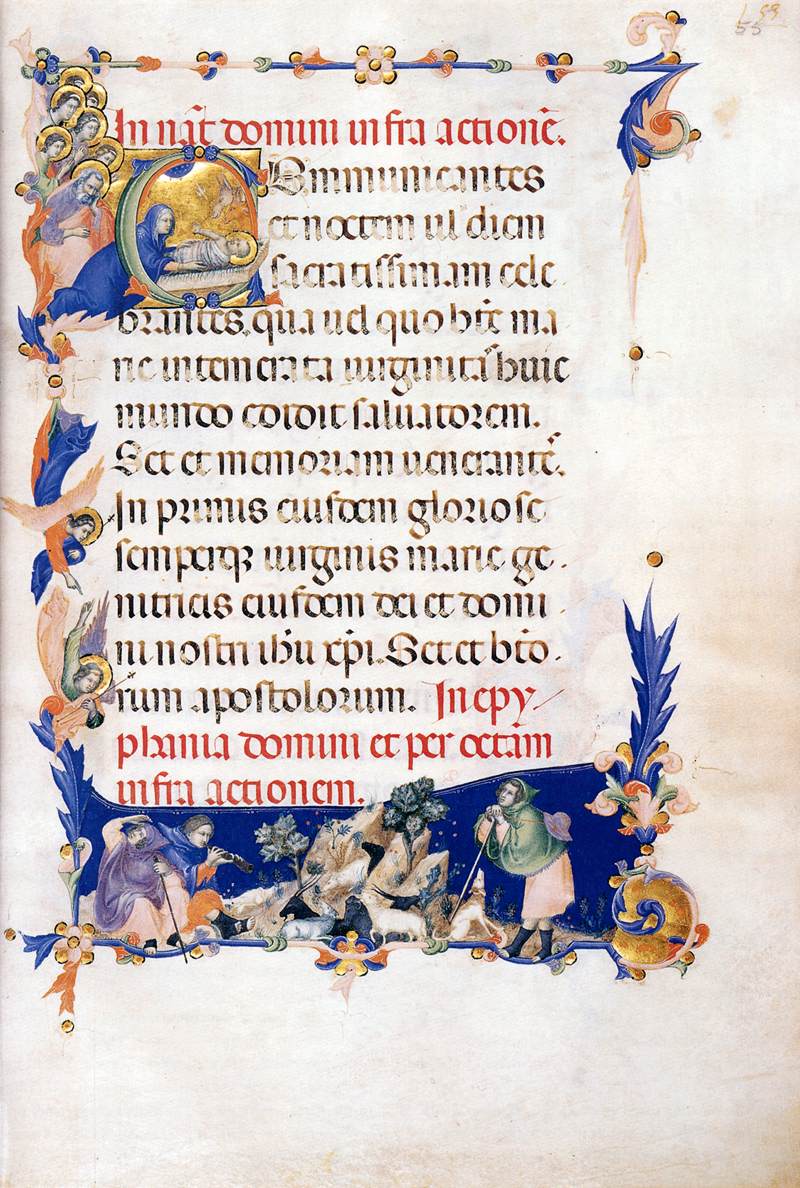 55
In nat̄ domini infra actionē.
Communicantes
et noctem uł diem
sacratissimam cele
brantes. qua uel quo btē ma
rie intemerata uirginitas huic
mundo edidit saluatorem.
Set et memoriam uenerantē.
In primis eiusdem gloriose
semperqꝫ uirginis marie ge
nitricis eiusdem dei et domi
ni nostri ih̄u xp̄i. Set et bt̄o
rum apostolorum. In epy
phania domini et per octam
infra actionem.